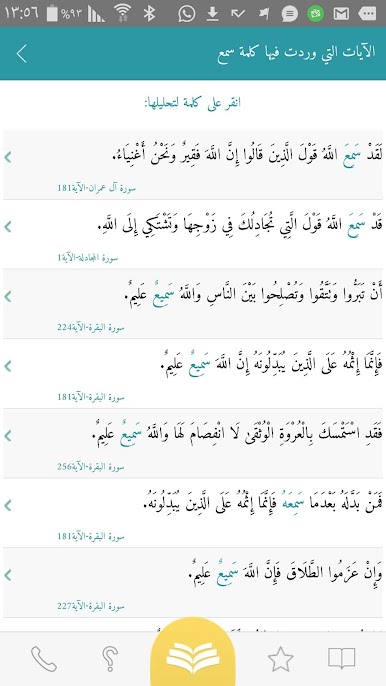 ١٣:٥٦ %٩٣
الآيات التي وردت فيها كلمة سمع
انقر على كلمة لتحليلها:
لَقَدْ سَمِعَ اللَّهُ قَوْلَ الَّذِينَ قَالُوا إِنَّ اللَّهَ فَقِيرٌ وَنَحْنُ أَغْنِيَاءُ.
سورة آل عمران-الآية181
قَدْ سَمِعَ اللَّهُ قَوْلَ الَّتِي تُجَادِلُكَ فِي زَوْجِهَا وَتَشْتَكِي إِلَى اللَّهِ.
سورة المجادلة-الآية1
أَنْ تَبَرُّوا وَتَتَّقُوا وَتُصْلِحُوا بَيْنَ النَّاسِ وَاللَّهُ سَمِيعٌ عَلِيمٌ.
سورة البقرة-الآية224
فَإِنَّمَا إِثْمُهُ عَلَى الَّذِينَ يُبَدِّلُونَهُ إِنَّ اللَّهَ سَمِيعٌ عَلِيمٌ.
سورة البقرة-الآية181
فَقَدِ اسْتَمْسَكَ بِالْعُرْوَةِ الْوُثْقَىٰ لَا انْفِصَامَ لَهَا وَاللَّهُ سَمِيعٌ عَلِيمٌ.
سورة البقرة-الآية256
فَمَنْ بَدَّلَهُ بَعْدَمَا سَمِعَهُ فَإِنَّمَا إِثْمُهُ عَلَى الَّذِينَ يُبَدِّلُونَهُ.
سورة البقرة-الآية181
وَإِنْ عَزَمُوا الطَّلَاقَ فَإِنَّ اللَّهَ سَمِيعٌ عَلِيمٌ.
سورة البقرة-الآية227